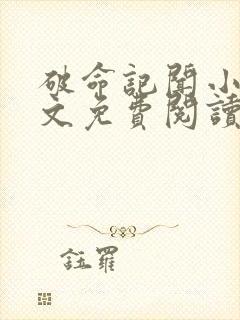 破命記聞小
文免費閱讀
鈺羅